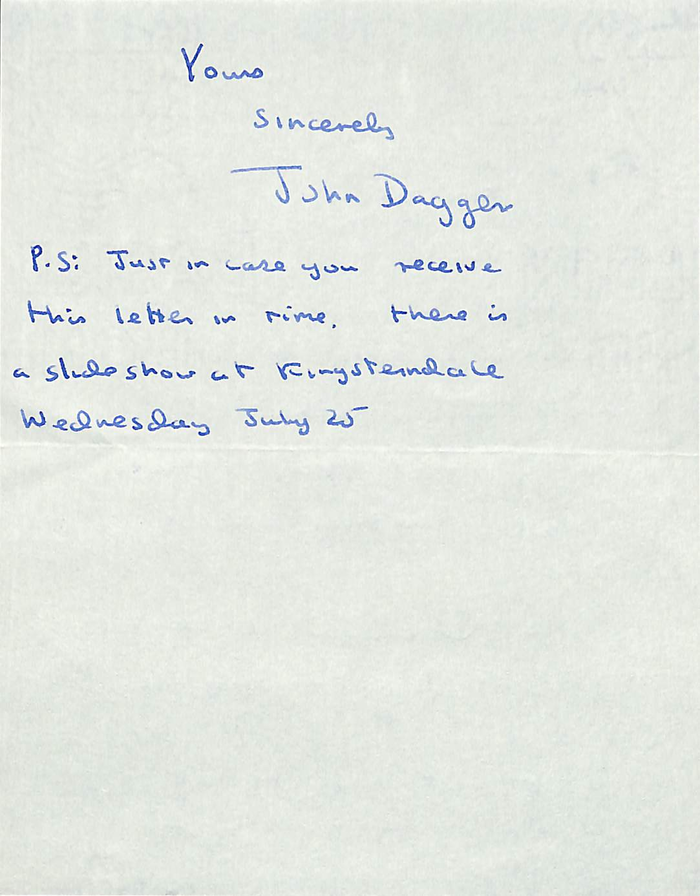 Yours
Sincerely
John Dagger
P.S: Just in case you receive
this letter in time, there is
a slide show at Kingsterndale
Wednesday July 25